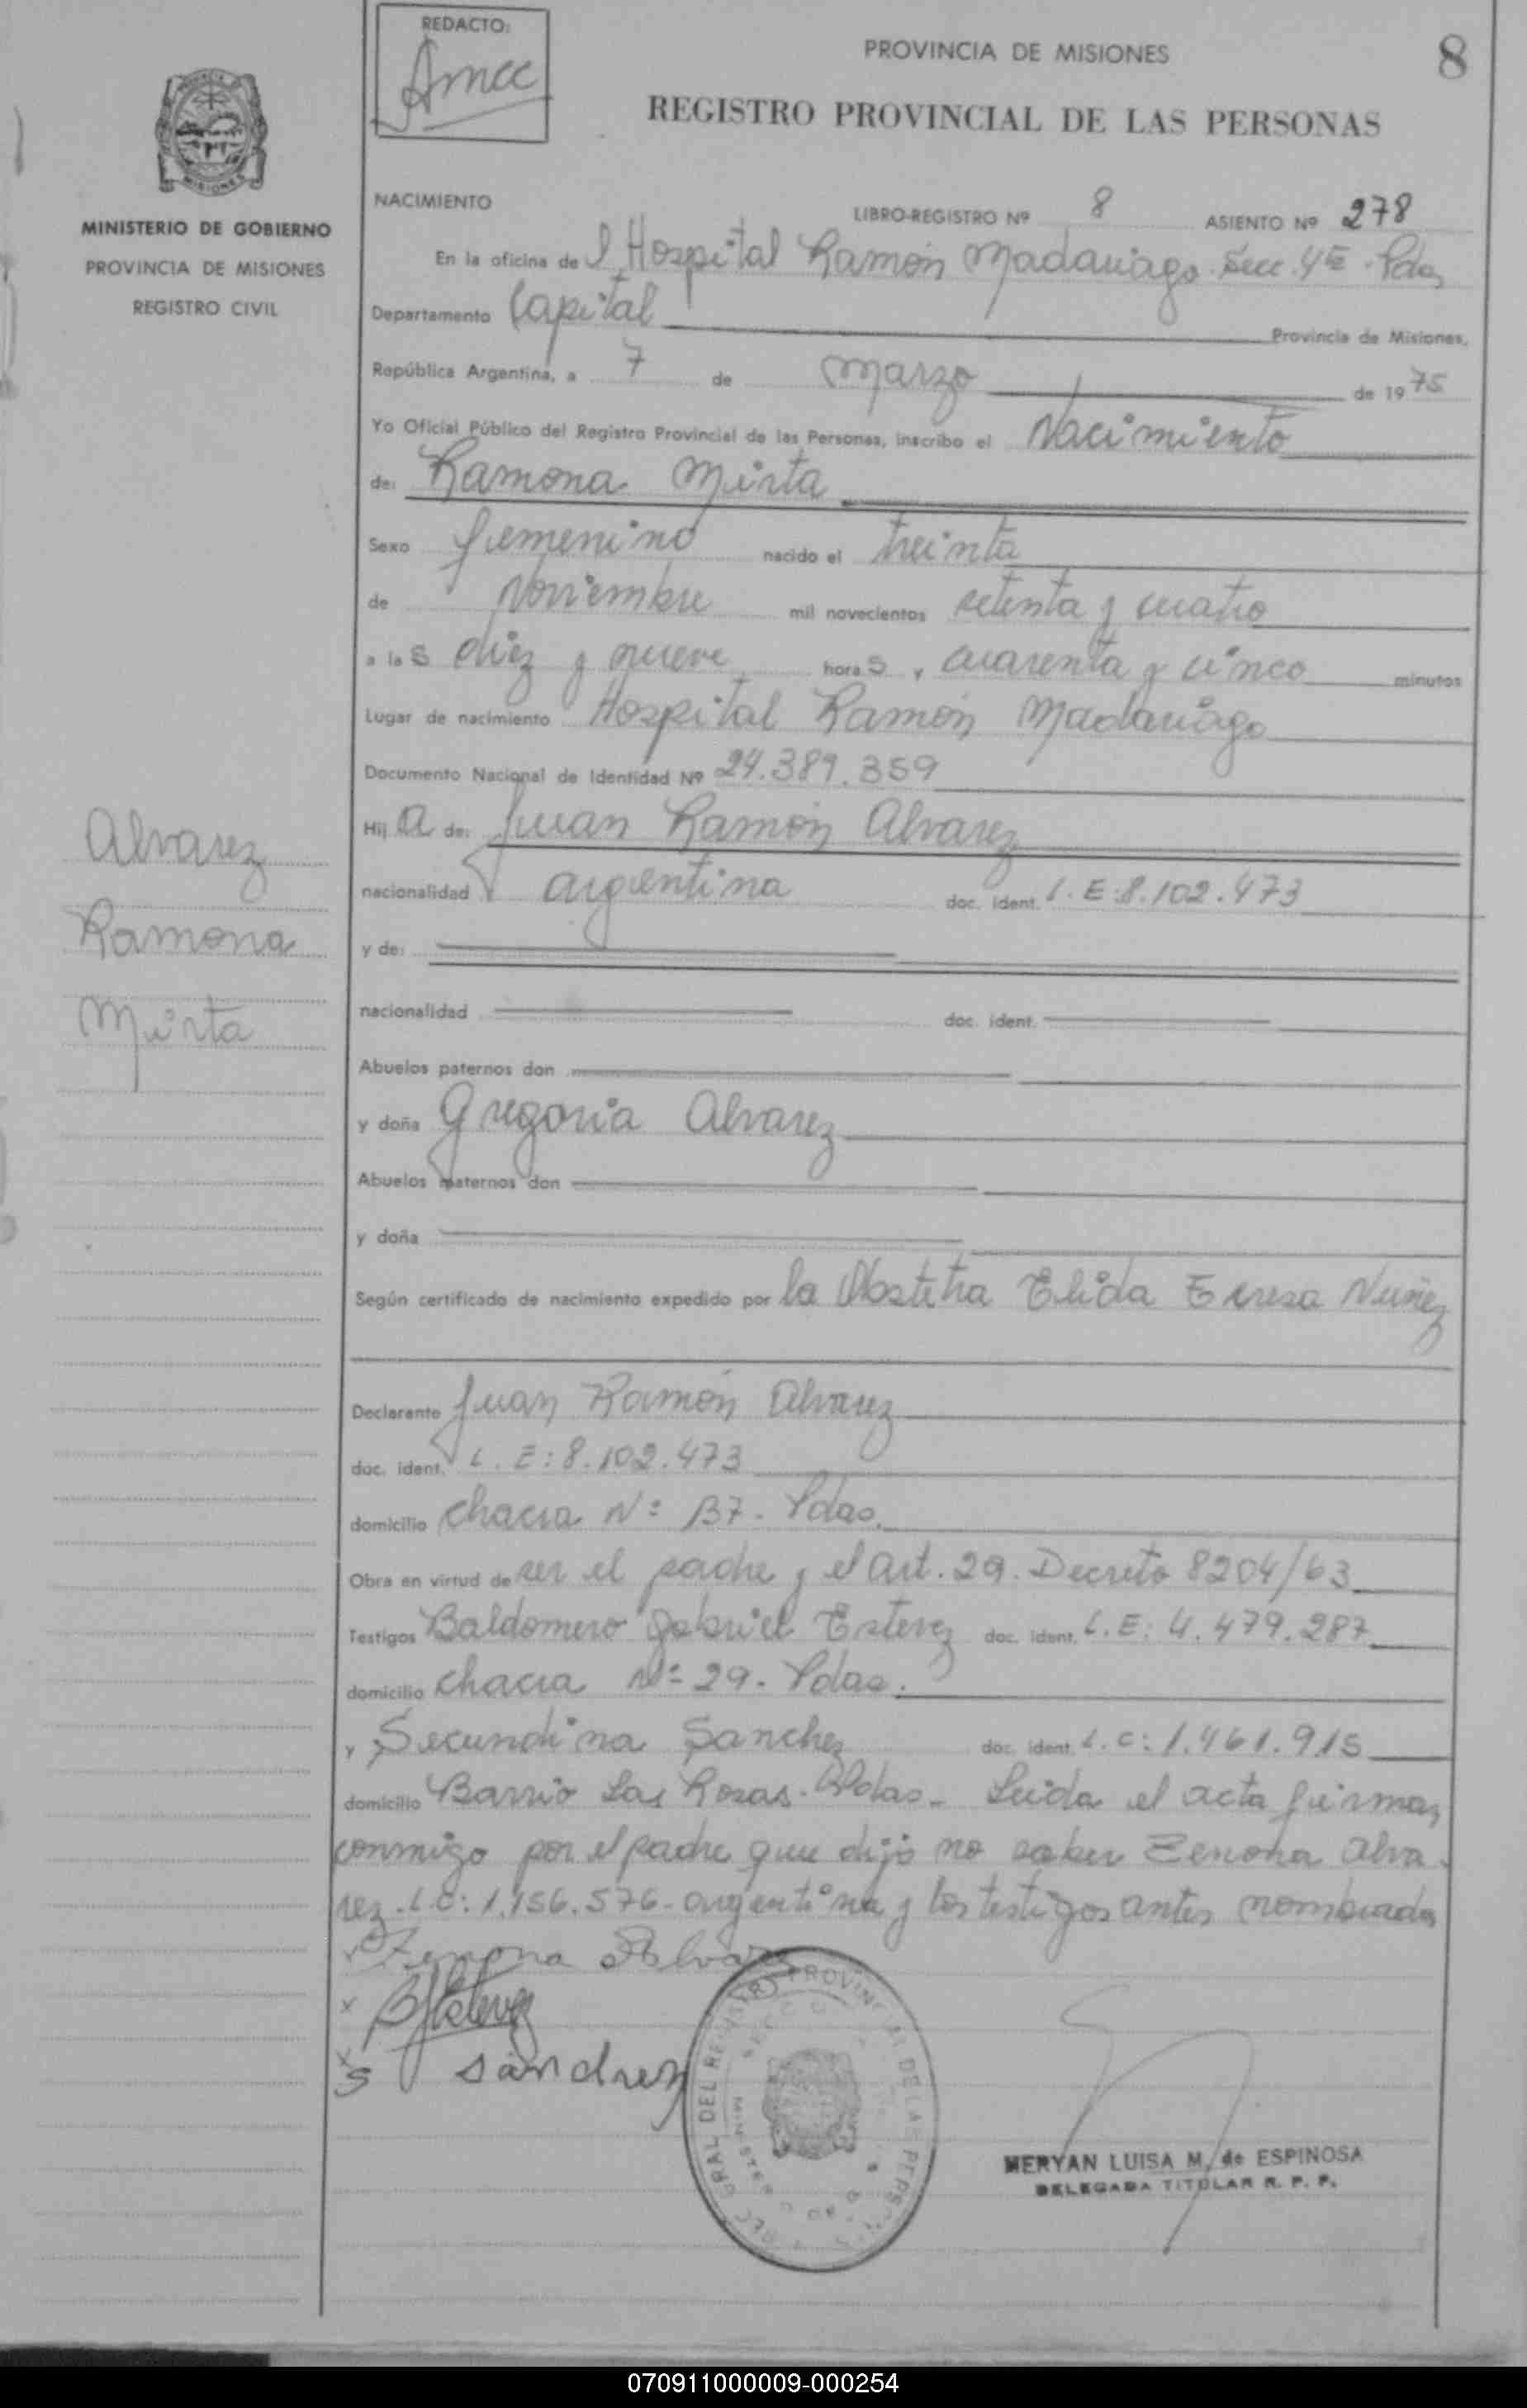 REDACTO:
Amcc
PROVINCIA DE MISIONES
8
REGISTRO PROVINCIAL DE LAS PERSONAS
MISIONES
MINISTERIO DE GOBIERNO
PROVINCIA DE MISIONES
REGISTRO CIVIL
NACIMIENTO
LIBRO-REGISTRO Nº 8 ASIENTO Nº 278
En la oficina del Hospital Ramón Madariaga. Secc. 4ta. Pdas
Departamento Capital Provincia de Misiones,
República Argentina, a 7 de Marzo de 1975
Yo Oficial Público del Registro Provincial de las Personas, inscribo el Nacimiento
de: Ramona Mirta
Sexo femenino nacido el treinta
de Noviembre mil novecientos setenta y cuatro
a las diez y nueve horas y cuarenta y cinco minutos
Lugar de nacimiento Hospital Ramón Madariaga
Documento Nacional de Identidad Nº 24.389.359
Hija de: Juan Ramón Alvarez
nacionalidad argentina doc. ident. L.E:8.102.473
y de:
nacionalidad doc. ident.
Abuelos paternos don
y doña Gregoria Alvarez
Abuelos maternos don
y doña
Según certificado de nacimiento expedido por la Obstetra Elida Eresa Nuñez
Declarante Juan Ramón Alvarez
doc. ident. L.E:8.102.473
domicilio Chacra Nº 137. Pdas.
Obra en virtud de ser el padre y el art. 29. Decreto 8204/63
Testigos Baldomero Gabriel Estevez doc. ident. L.E: 4.479.287
domicilio Chacra Nº 29. Pdas.
y Secundina Sanchez doc. ident. L.C: 1.461.915
domicilio Barrio Las Rosas. Pdas. Leida el acta firman
conmigo por el padre que dijo no saber Zenona Alva.
rez. L.C: 1.156.576. argentina y los testigos antes nombrados
Alvarez
Ramona
Mirta
x Zenona Alvarez
x BGEstevez
x S Sanchez
MERYAN LUISA M. de ESPINOSA
DELEGADA TITULAR R. P. P.
070911000009-000254